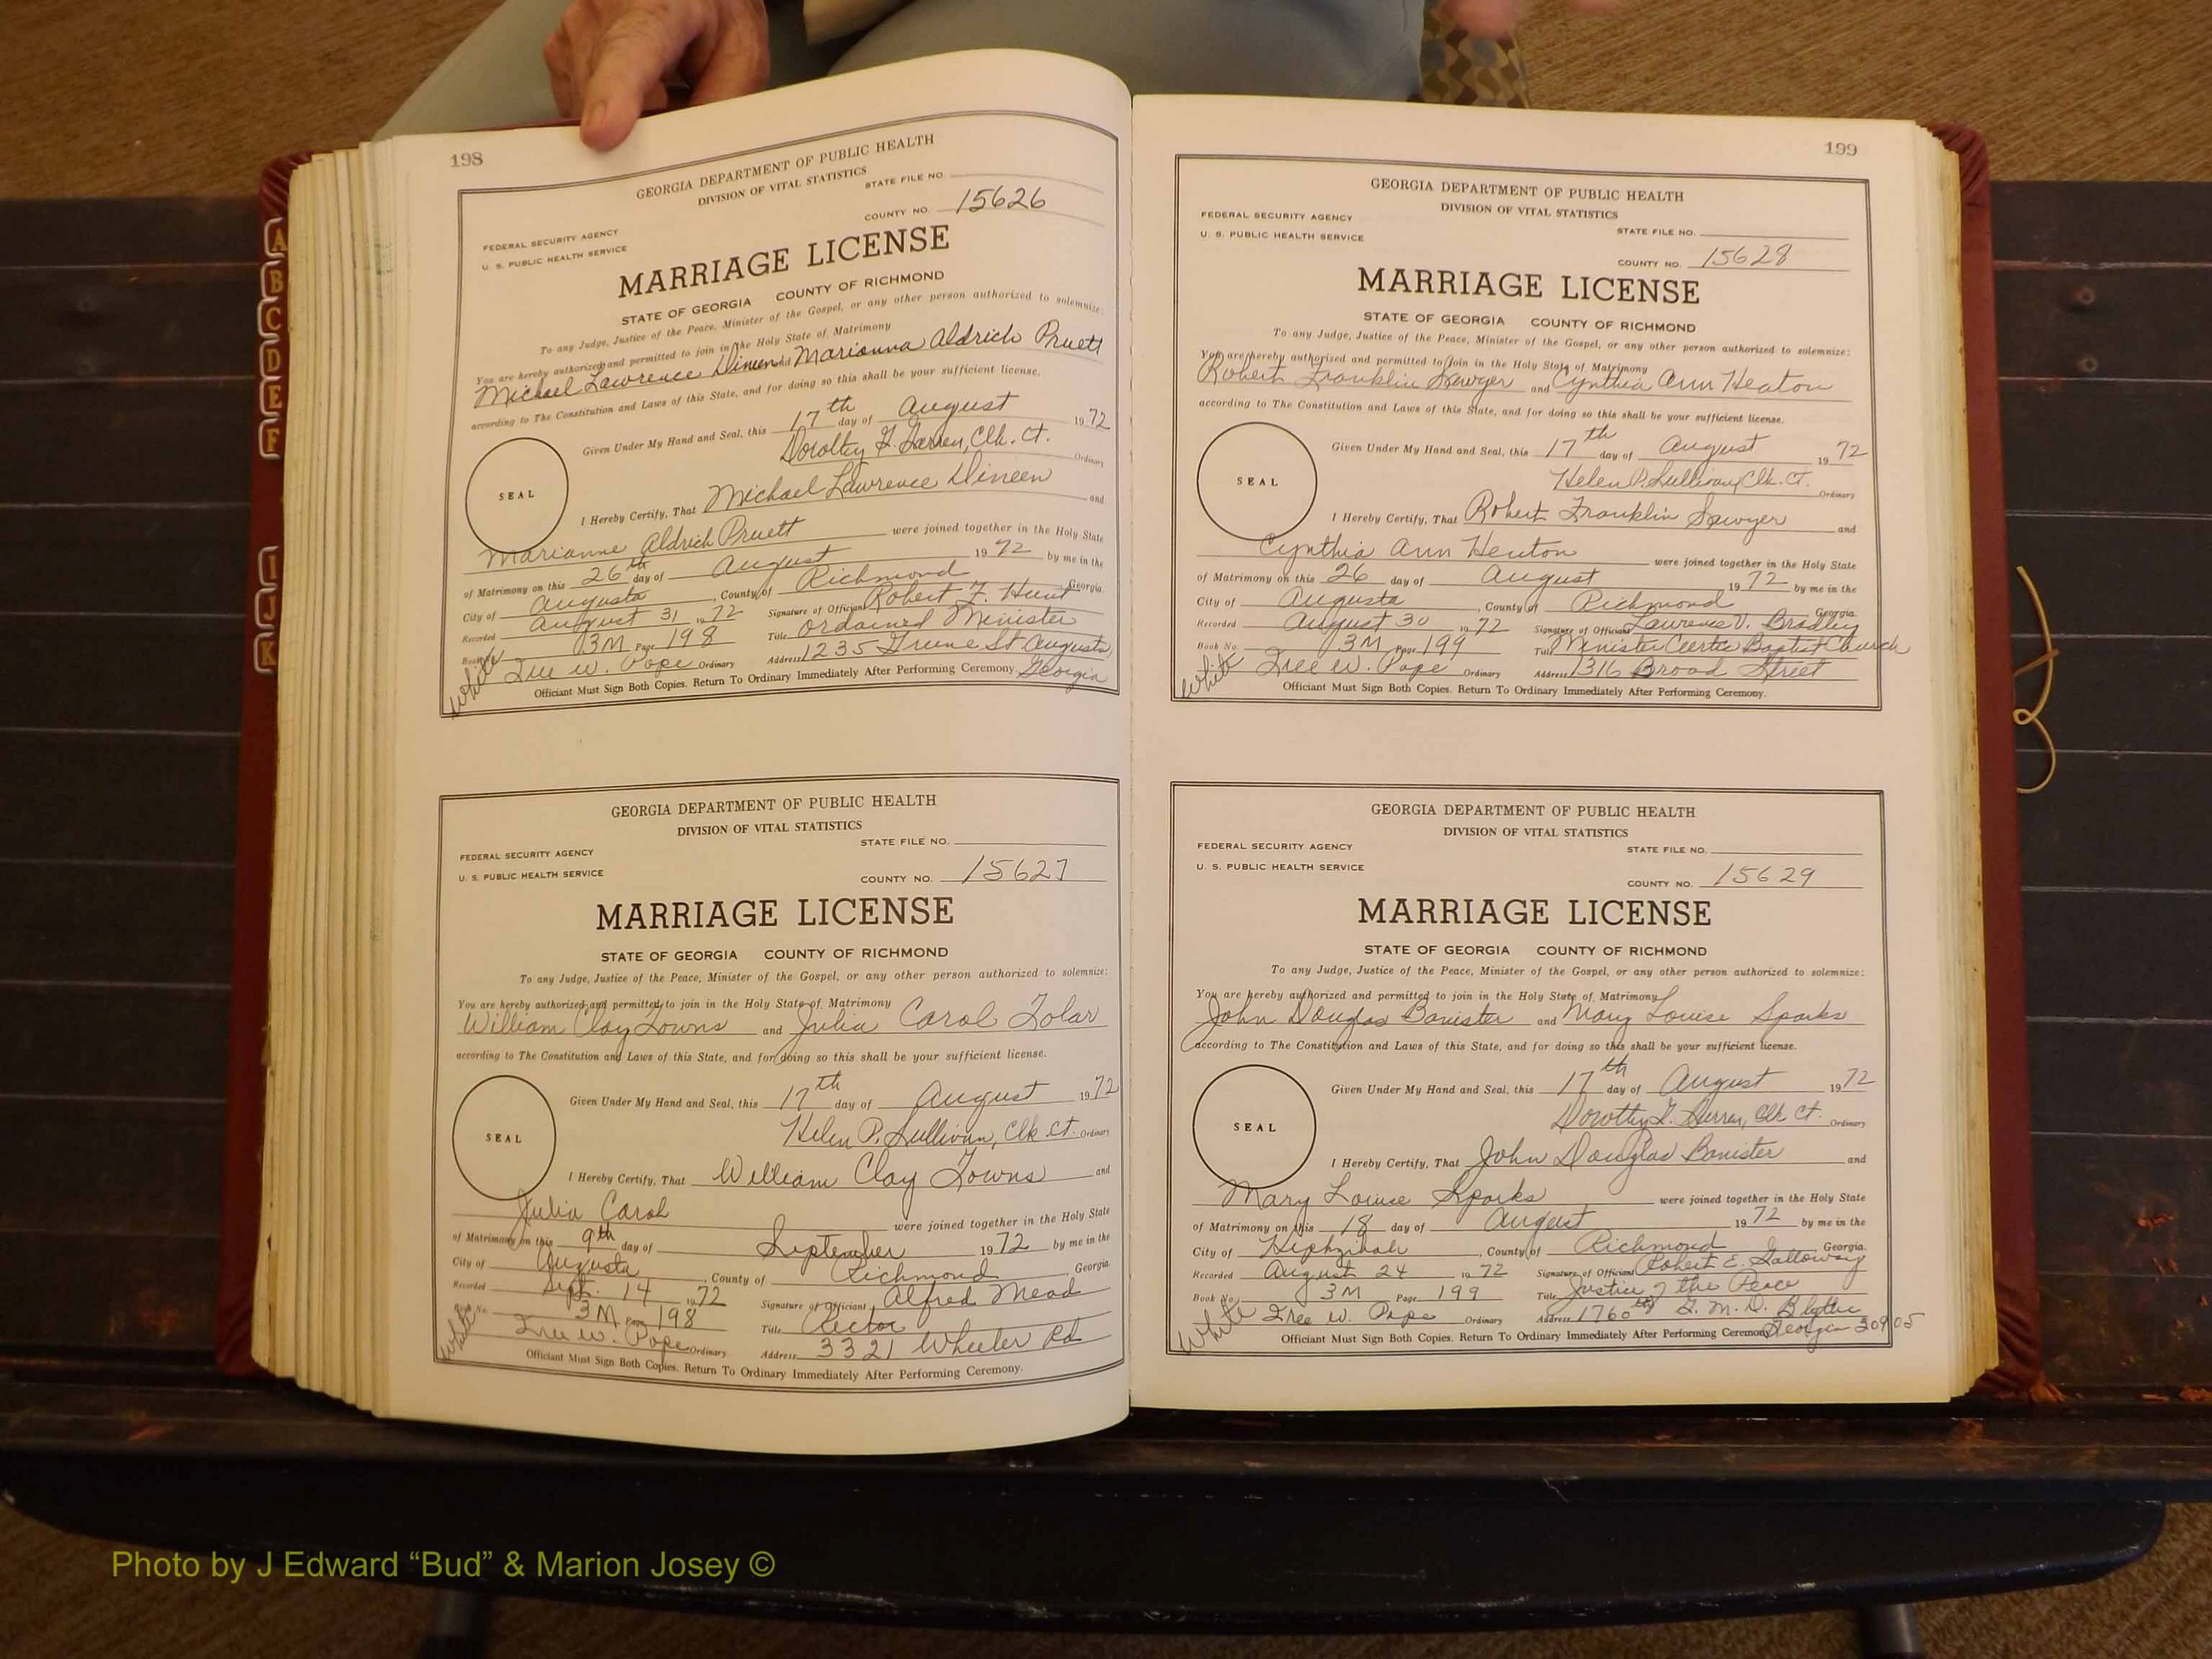 198
GEORGIA DEPARTMENT OF PUBLIC HEALTH
DIVISION OF VITAL STATISTICS
STATE FILE NO.
COUNTY NO. 15626
FEDERAL SECURITY AGENCY
U. S. PUBLIC HEALTH SERVICE
MARRIAGE LICENSE
STATE OF GEORGIA COUNTY OF RICHMOND
To any Judge, Justice of the Peace, Minister of the Gospel, or any other person authorized to solemnize:
You are hereby authorized and permitted to join in the Holy State of Matrimony
Michael Lawrence Dineen and Marianna Aldrich Pruett
according to The Constitution and Laws of this State, and for doing so this shall be your sufficient license.
Given Under My Hand and Seal, this 17th day of August 1972
Dorothy Clk. Ct. Ordinary
SEAL
I Hereby Certify, That Michael Lawrence Dineen and
Marianne Aldrich Pruett were joined together in the Holy State
of Matrimony on this 26th day of August 1972 by me in the
City of Augusta, County of Richmond Georgia.
Recorded August 31 1972 Signature of Officiant Robert F. Hunt
Book No. 3M Page 198 Title Ordained Minister
White W. Pope Ordinary Address 1235 Greene St Augusta,
Georgia
Officiant Must Sign Both Copies. Return To Ordinary Immediately After Performing Ceremony.
GEORGIA DEPARTMENT OF PUBLIC HEALTH
DIVISION OF VITAL STATISTICS
STATE FILE NO.
FEDERAL SECURITY AGENCY
U. S. PUBLIC HEALTH SERVICE
COUNTY NO. 15627
MARRIAGE LICENSE
STATE OF GEORGIA COUNTY OF RICHMOND
To any Judge, Justice of the Peace, Minister of the Gospel, or any other person authorized to solemnize:
You are hereby authorized and permitted to join in the Holy State of Matrimony
William Clay Towns and Julia Carol Tolar
according to The Constitution and Laws of this State, and for doing so this shall be your sufficient license.
Given Under My Hand and Seal, this 17th day of August 1972
Helen P. Sullivan, Clk Ct. Ordinary
SEAL
I Hereby Certify, That William Clay Towns and
Julia Carol were joined together in the Holy State
of Matrimony on this 9th day of September 1972 by me in the
City of Augusta, County of Richmond, Georgia.
Recorded Sept. 14 1972 Signature of Officiant Alfred Mead
Book No. 3M Page 198 Title Rector
White W. Pope Ordinary Address 3321 Wheeler Rd
Officiant Must Sign Both Copies. Return To Ordinary Immediately After Performing Ceremony.
199
GEORGIA DEPARTMENT OF PUBLIC HEALTH
DIVISION OF VITAL STATISTICS
FEDERAL SECURITY AGENCY
U. S. PUBLIC HEALTH SERVICE
STATE FILE NO.
COUNTY NO. 15628
MARRIAGE LICENSE
STATE OF GEORGIA COUNTY OF RICHMOND
To any Judge, Justice of the Peace, Minister of the Gospel, or any other person authorized to solemnize:
You are hereby authorized and permitted to join in the Holy State of Matrimony
Robert Franklin Sawyer and Cynthia Ann Heaton
according to The Constitution and Laws of this State, and for doing so this shall be your sufficient license.
Given Under My Hand and Seal, this 17th day of August 1972
Helen P. Sullivan, Clk. Ct. Ordinary
SEAL
I Hereby Certify, That Robert Franklin Sawyer and
Cynthia Ann were joined together in the Holy State
of Matrimony on this 26 day of August 1972 by me in the
City of Augusta, County of Richmond Georgia.
Recorded August 30 1972 Signature of Officiant Lawrence V. Bradley
Book No. 3M Page 199 Title Minister Baptist Church
White W. Pope Ordinary Address 1316 Broad Street
Officiant Must Sign Both Copies. Return To Ordinary Immediately After Performing Ceremony.
GEORGIA DEPARTMENT OF PUBLIC HEALTH
DIVISION OF VITAL STATISTICS
FEDERAL SECURITY AGENCY
U. S. PUBLIC HEALTH SERVICE
STATE FILE NO.
COUNTY NO. 15629
MARRIAGE LICENSE
STATE OF GEORGIA COUNTY OF RICHMOND
To any Judge, Justice of the Peace, Minister of the Gospel, or any other person authorized to solemnize:
You are hereby authorized and permitted to join in the Holy State of Matrimony
John Douglas Banister and Mary Louise Sparks
according to The Constitution and Laws of this State, and for doing so this shall be your sufficient license.
Given Under My Hand and Seal, this 17th day of August 1972
Dorothy Clk Ct. Ordinary
SEAL
I Hereby Certify, That John Douglas Banister and
Mary Louise Sparks were joined together in the Holy State
of Matrimony on this 18 day of August 1972 by me in the
City of Hephzibah, County of Richmond Georgia.
Recorded August 24 1972 Signature of Officiant Robert E. Galloway
Book No. 3M Page 199 Title Justice of the Peace
White W. Pope Ordinary Address 1760th G. M. D. Blythe
Georgia 30905
Officiant Must Sign Both Copies. Return To Ordinary Immediately After Performing Ceremony
A
B
C
D
E
F
I
J
K
Photo by J Edward “Bud” & Marion Josey ©